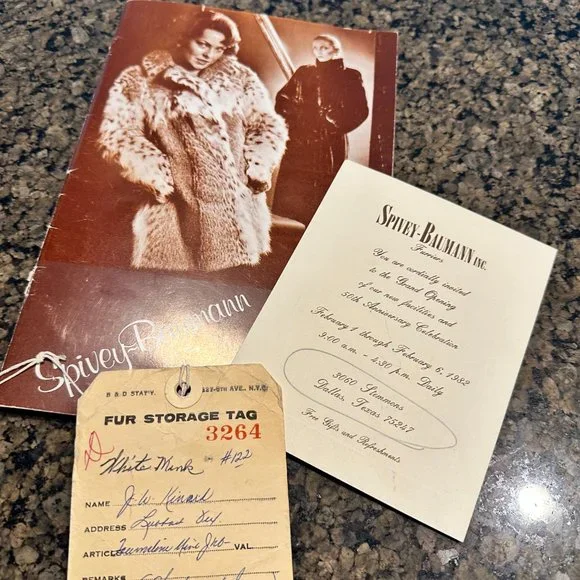 Spivey-Baumann
SPIVEY-BAUMANN INC.
Furriers
You are cordially invited
to the Grand Opening
of our new facilities and
50th Anniversary Celebration
February 1 through February 6, 1982
9:00 a.m. - 4:30 p.m. Daily
3060 Stemmons
Dallas, Texas 75247
Free Gifts and Refreshments
B & D STAT'Y. 227-6TH AVE., N.Y.C.
FUR STORAGE TAG
3264
D
White Mink #122
NAME J. W. Kinard
ADDRESS
ARTICLE VAL.
REMARKS